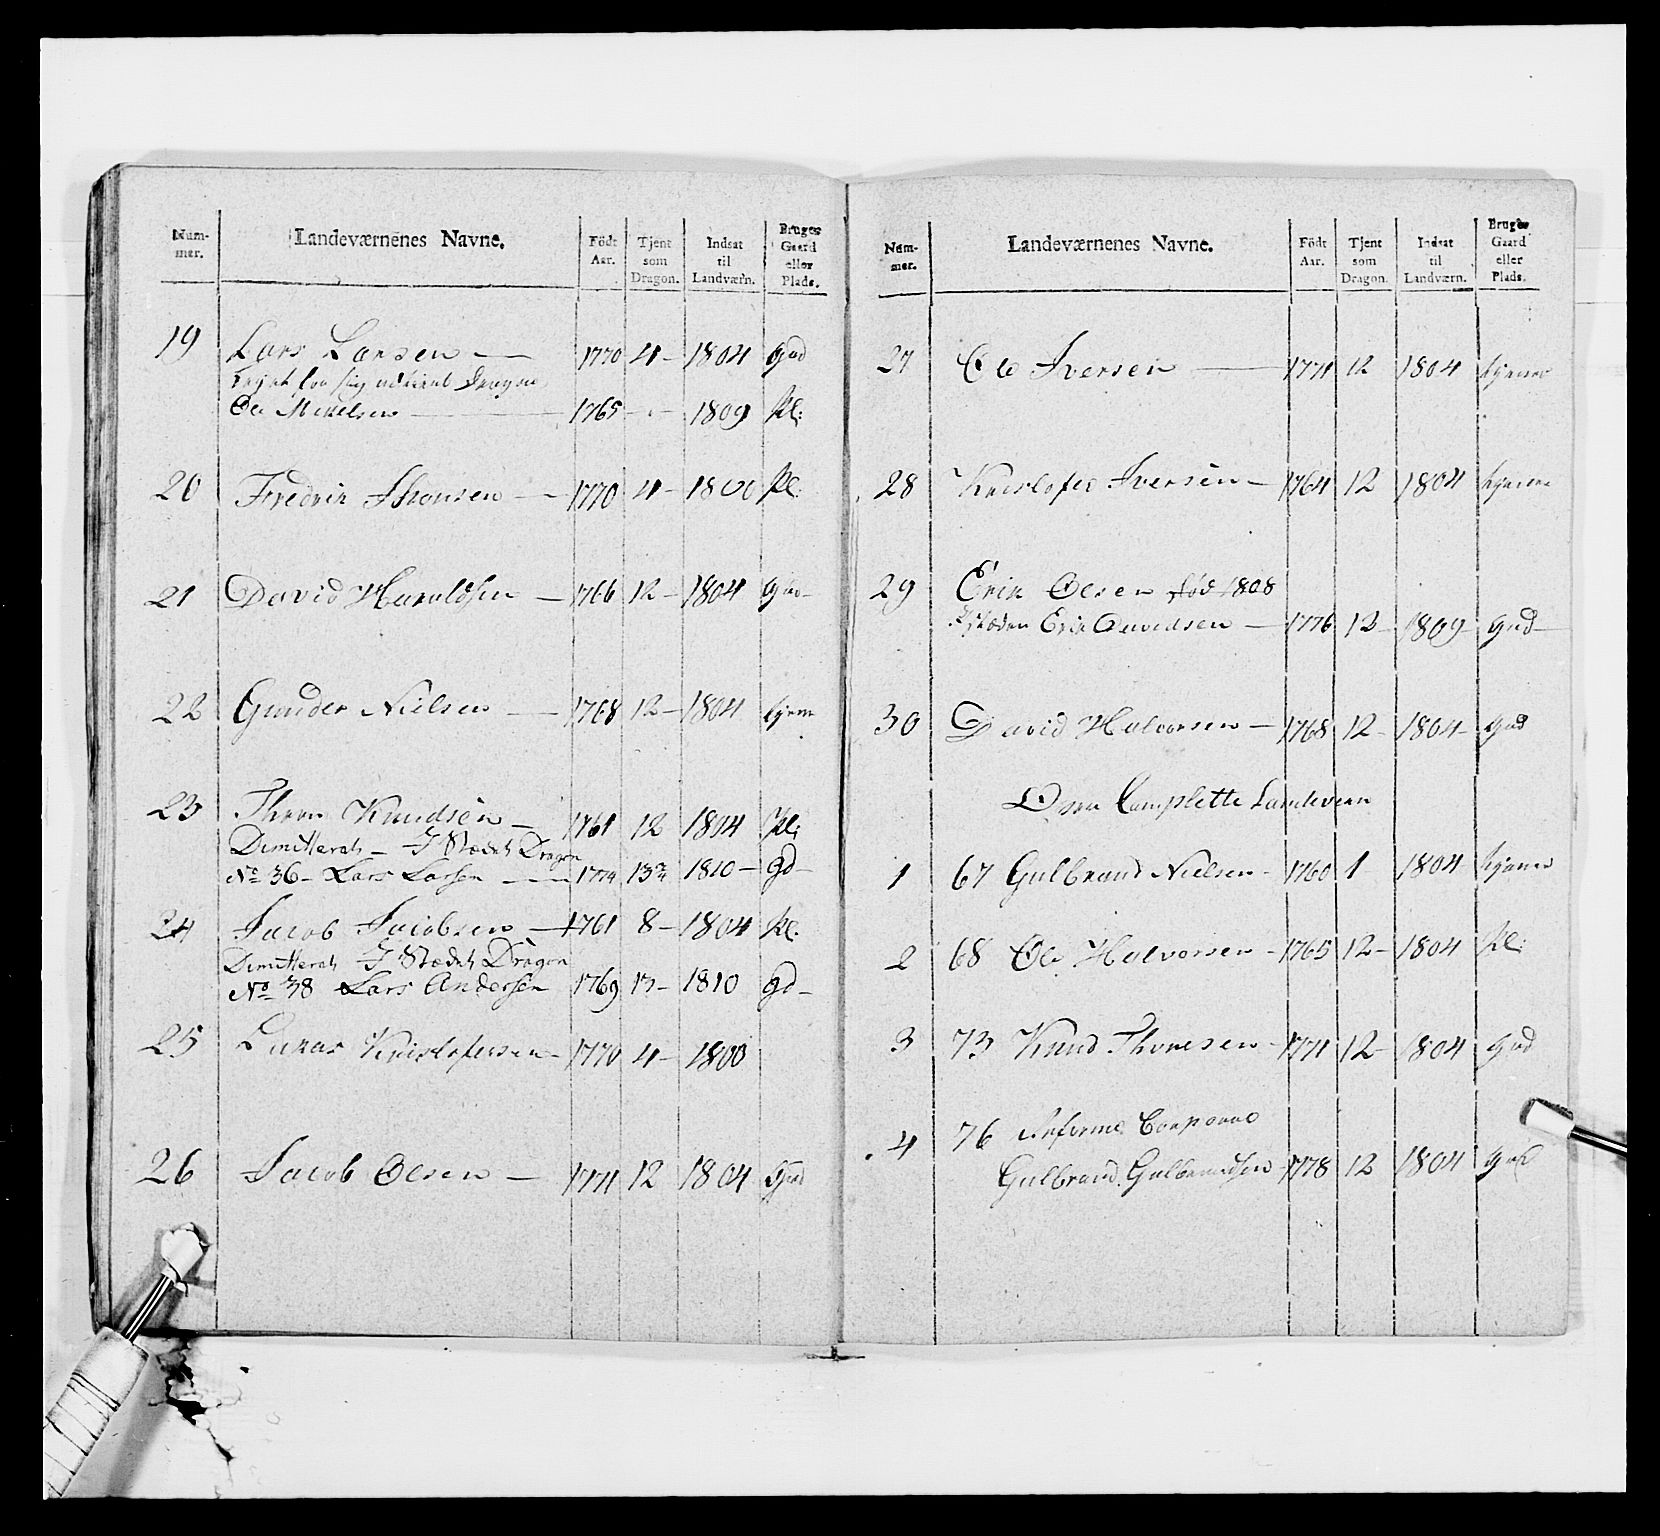 Num-
mer.
Landeværnenes Navne.
Födt
Aar.
Tjent
som
Dragon.
Indsat
til
Landværn.
Bruges
Gaard
eller
Plads.
19 Lars Larsen — 1770 4 — 1804 Grd
Dragon
Ole Mikkelsen — 1765 — 1809 Pl:
20 Fredrik Thonsen — 1770 4 — 1800 Pl:
21 David Haraldsen — 1766 12 — 1804
22 Gunder Nielsen — 1768 12 — 1804
23 Knudsen — 1761 12 1804 Pl:
Dimitterat — I Stædet Dragon
No 36 — Lars Larsen — 1774 13 1810 — Gd —
24 Jacob Jacobsen — 1761 8 — 1804 Pl:
Dimitterat I Stædet Dragon
No 38 Lars Andersen 1769 13 — 1810 Gd —
25 Lukas Kristofersen — 1770 4 — 1800
26 Jacob Olsen — 1771 12 1804 Grd
Num-
mer.
Landeværnenes Navne.
Födt
Aar.
Tjent
som
Dragon.
Indsat
til
Landværn.
Bruges
Gaard
eller
Plads.
27 Ole Iversen — 1771 12 1804
28 Kristofer Iversen — 1764 12 1804
29 Erik Olsen død 1808
I stæden Erik Davidsen — 1776 12 — 1809 — Grd —
30 David Halvorsen — 1768 12 — 1804 — Grd
Over Complette Landevern
1 67 Gulbrand Nielsen — 1760 1 1804
2 68 Ole Halvorsen — 1765 12 — 1804 Pl:
3 73 Knud Thoresen — 1771 12 — 1804 Grd
4 76 Corporal
Gulbrand Gulbrandsen 1778 12 1804 Grd